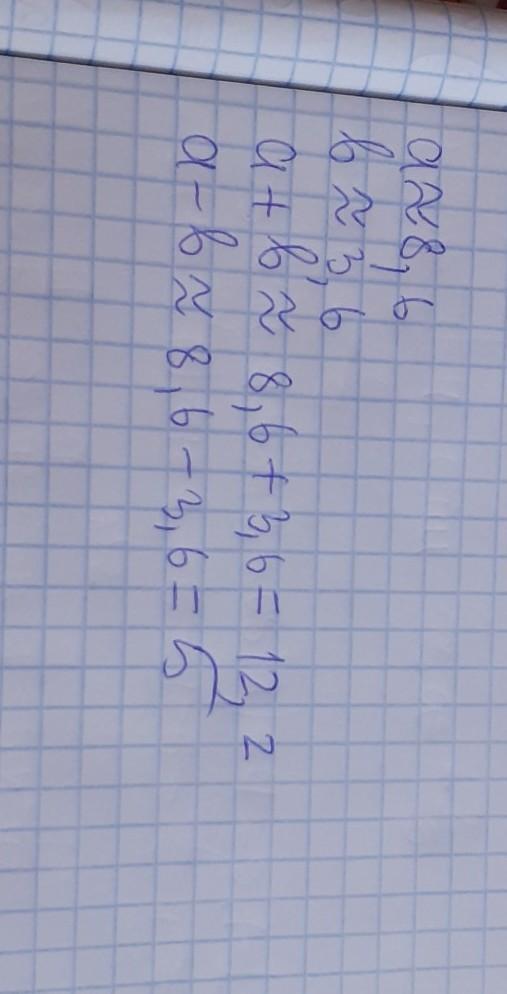 a ≈ 8,6
b ≈ 3,6
a + b ≈ 8,6 + 3,6 = 12,2
a - b ≈ 8,6 - 3,6 = 5